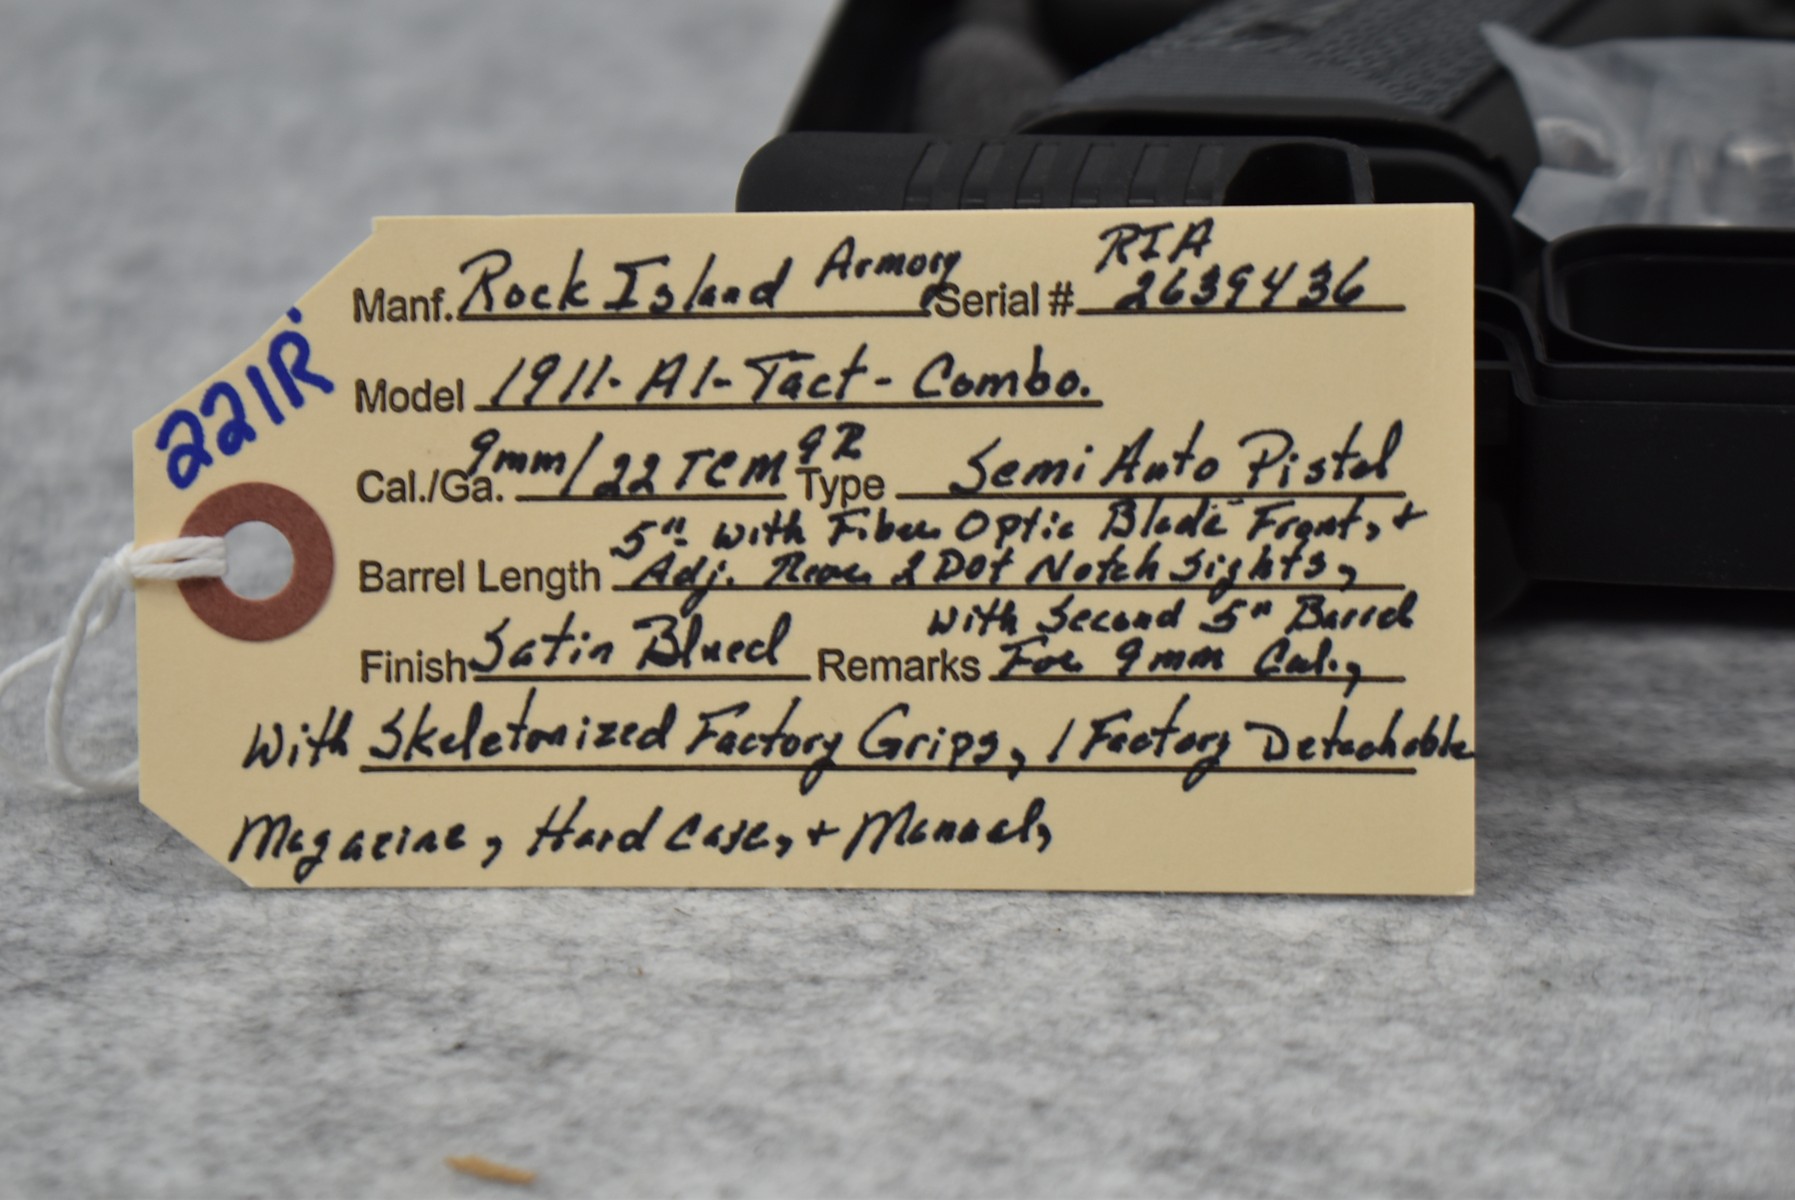 221R.
Manf. Rock Island Armory Serial # RIA 2639436
Model 1911-A1-Tact-Combo.
Cal./Ga. 9mm/22TCM 9R Type Semi Auto Pistol
5" with Fiber Optic Blade Front, +
Barrel Length Adj. Rear 2 Dot Notch Sights,
with Second 5" Barrel
Finish Satin Blued Remarks For 9mm Cal.,
With Skeletonized Factory Grips, 1 Factory Detachable
Magazine, Hard Case, + Manual,